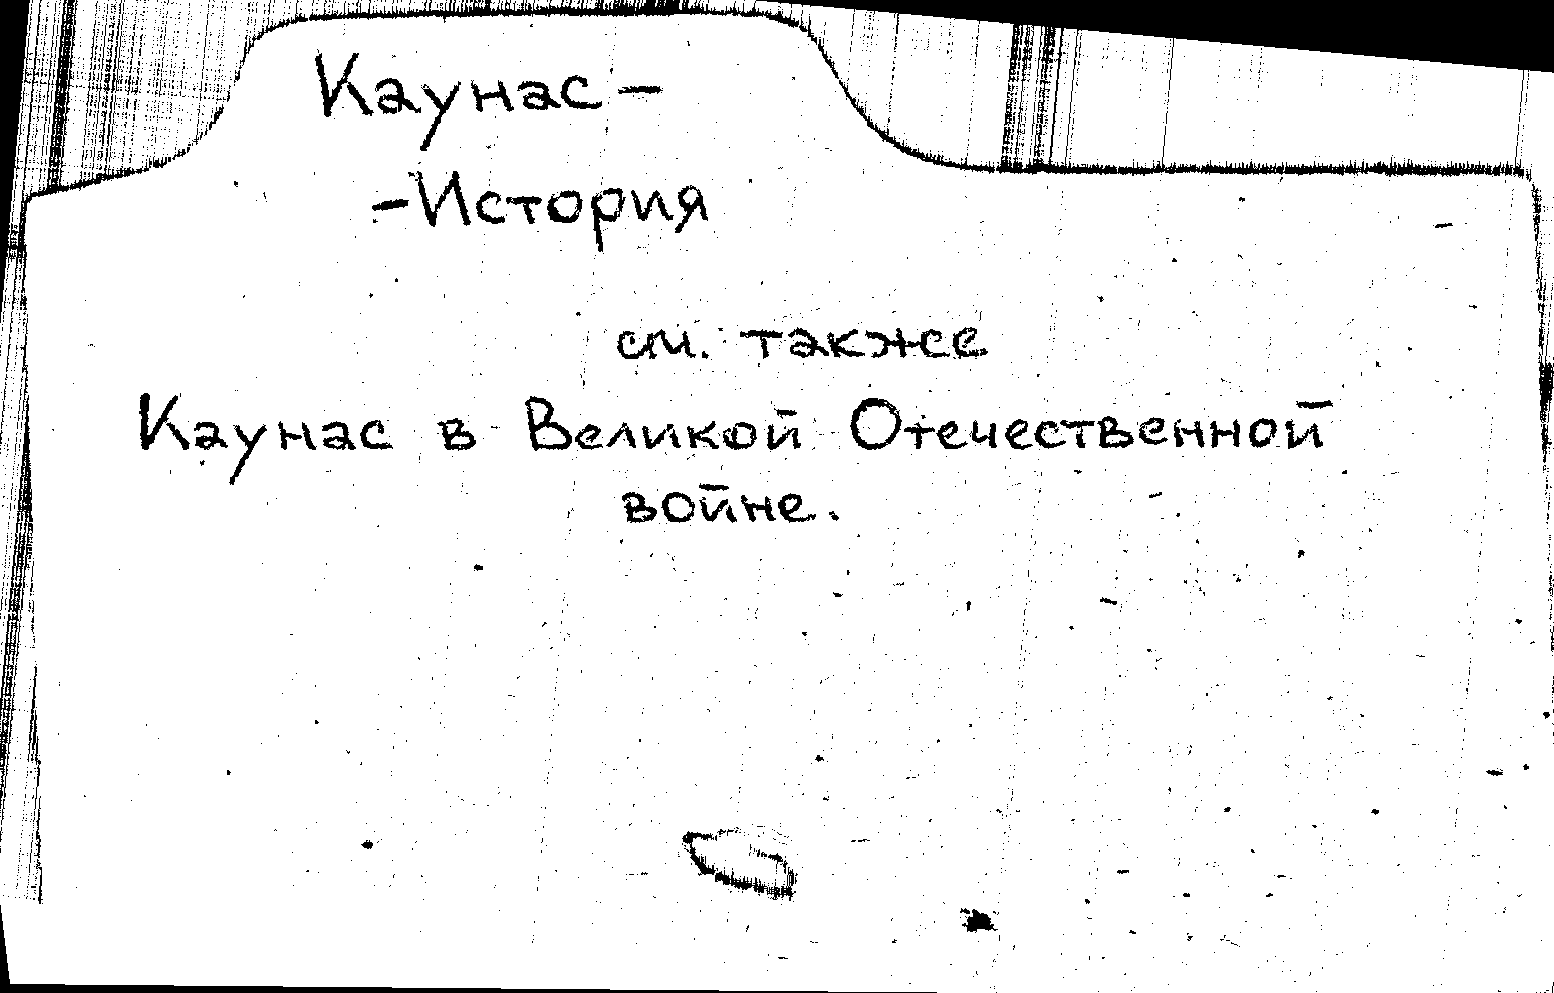 Каунас –
– История
см. также
Каунас в Великой Отечественной
войне.